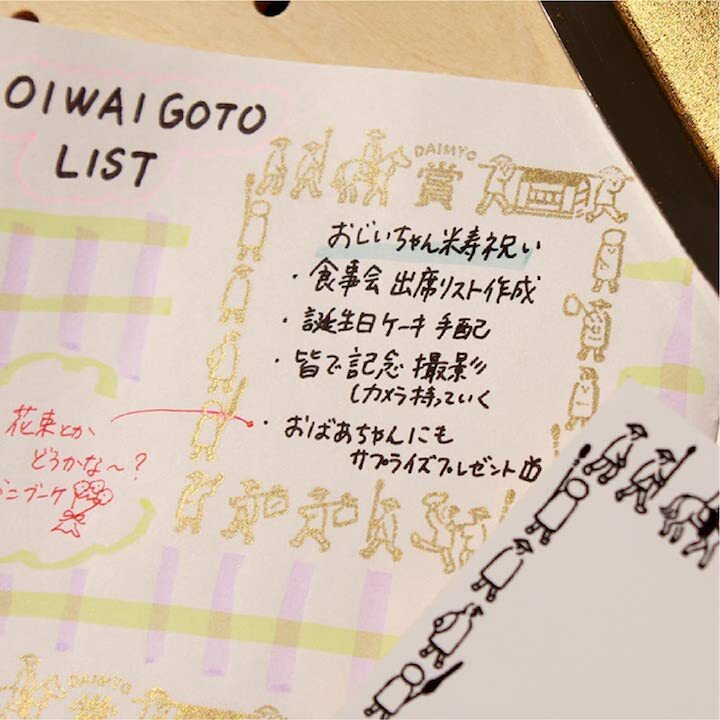 OIWAIGOTO
LIST
DAIMYO
賞
おじいちゃん米寿祝い
・食事会 出席リスト作成
・誕生日ケーキ手配
・皆で記念撮影
カメラ持っていく
・おばあちゃんにも
サプライズプレゼント
花束とか
どうかな〜?
ミニブーケ
DAIMYO
賞